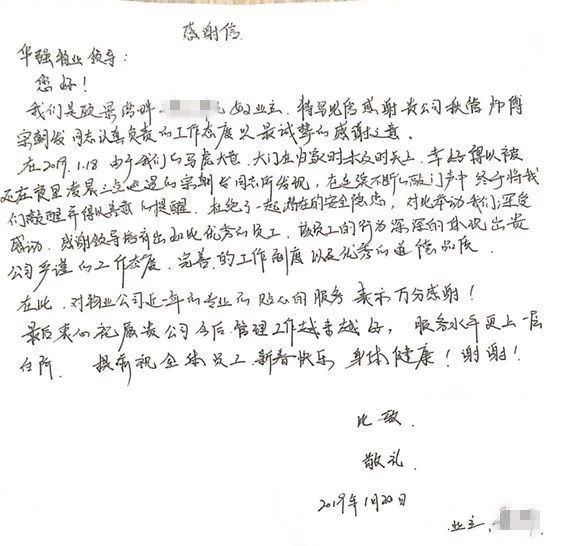 感谢信
华强物业领导:
您好!
我们是欧景湾畔 业主、特写此信感谢贵公司秩偣师傅
宗朝发同志认真负责的工作态度以最诚挚的感谢之意。
在2019.1.18由于我们的马虎大意、大门在白家时未及时关上、幸好得以被
还在夜里凌晨三点巡逻的宗朝发同志所发现,在连续不断的敲门声中终于将我
们敲醒并得以善意的提醒、杜绝了一起潜在的安全隐患,对此举动我们深受
感动、感谢领导培养出如此优秀的员工、该员工的行为深深的体现出贵
公司严谨的工作态度、完善的工作制度以及优秀的道德品质、
在此、对物业公司近一年的专业的贴心的服务表示万分感谢!
最后衷心祝愿贵公司今后管理工作越来越好,服务水平更上一层
台阶、提前祝全体员工新春快乐 身体健康!谢谢!
此致、
敬礼、
2019年1月20日
业主: